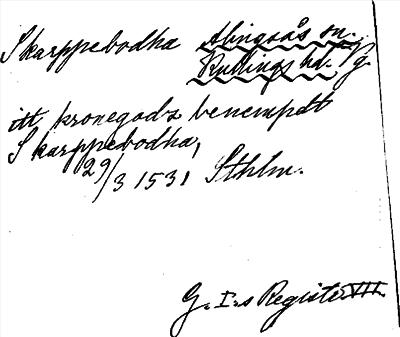 Skarppebodha Alingsås sn. Vg.
Kullings hd.
itt kronegodz benempdt
Skarppebodha,
29/3 1531 Sthlm.
G. I:s Register VII